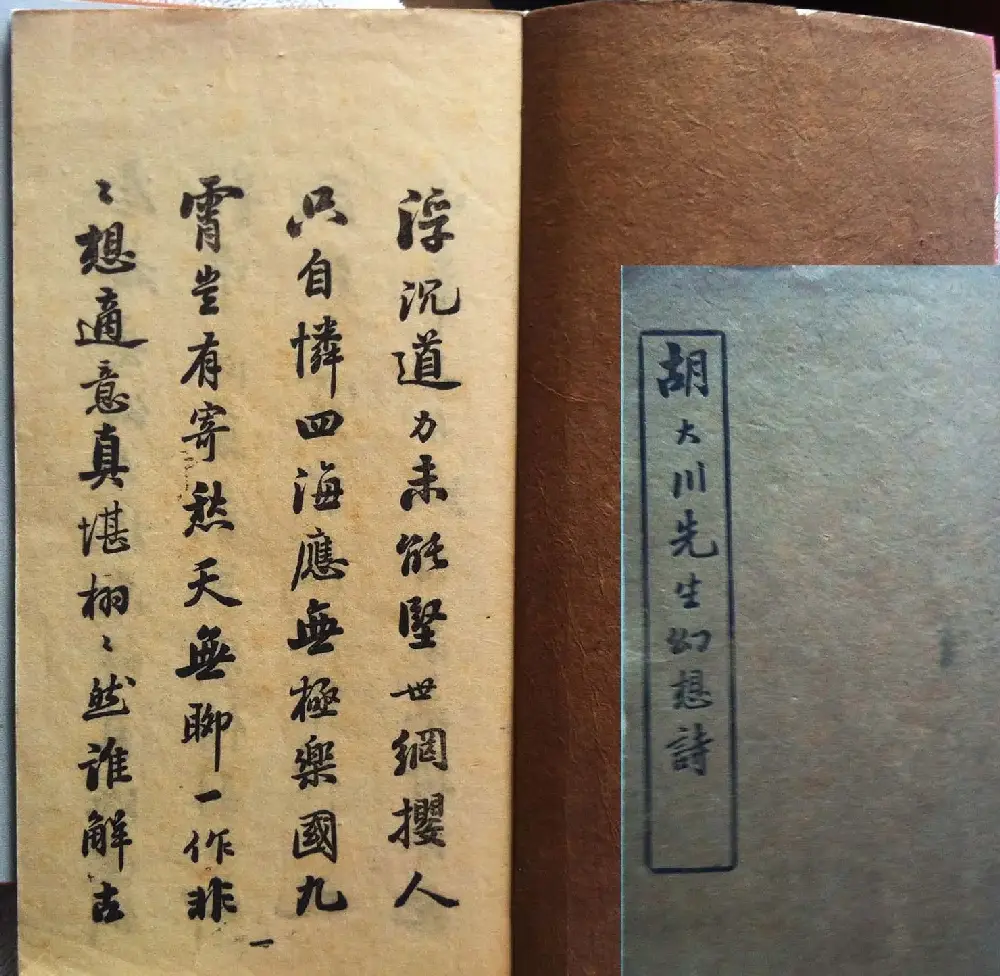 胡大川先生幻想詩
浮沉道力未能堅世網攖人
只自憐四海應無極樂國九
霄豈有寄愁天無聊一作非
〻想適意真堪栩〻然誰解古
一